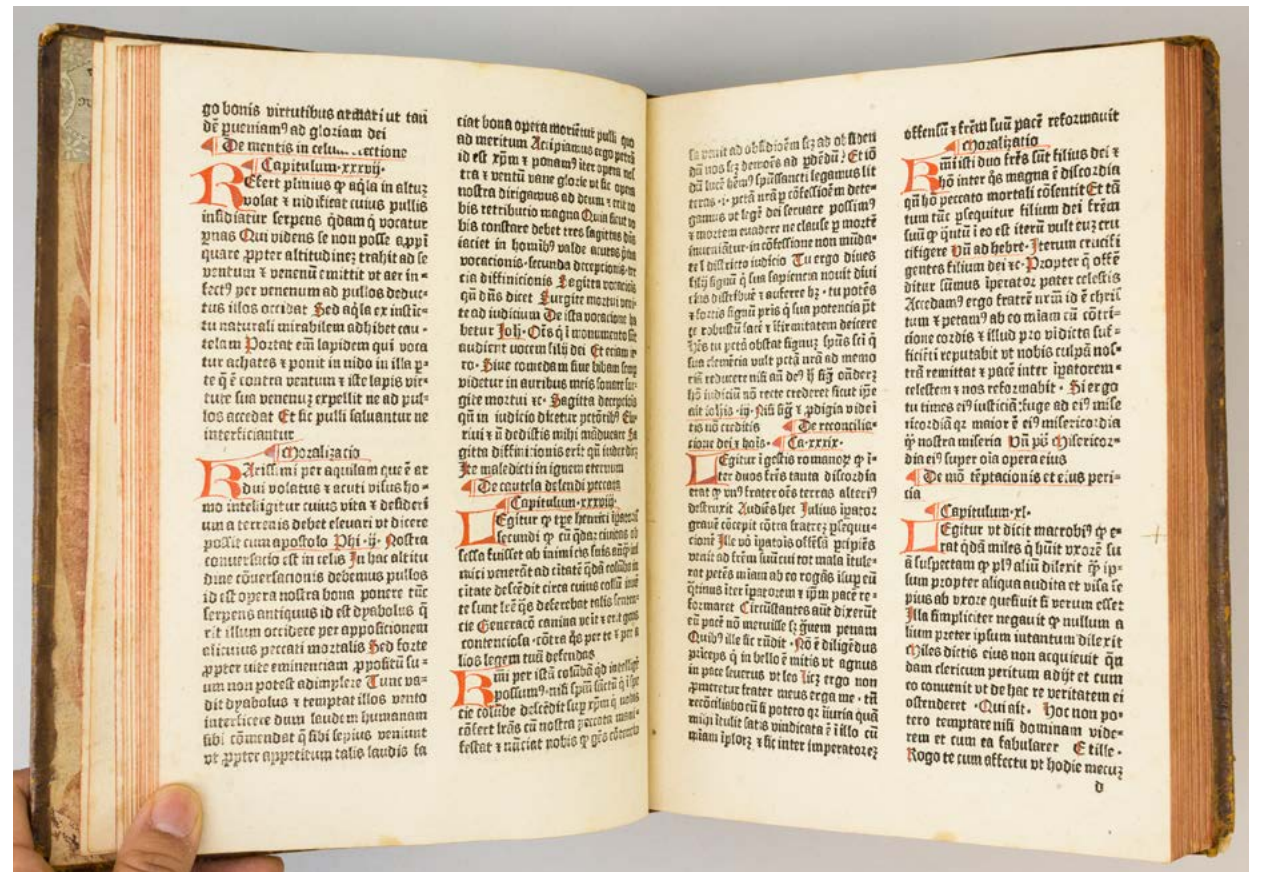 go bonis virtutibus armari ut tan
dē pueniamꝰ ad gloriam dei
De mentis in celum erectione
Capitulum·xxxvij·
REfert plinius ꝙ aq̄la in altuꝫ
volat ⁊ nidificat cuius pullis
insidiatur serpens q̄dam q̄ vocatur
ꝑnas Qui videns se non posse appī
quare ꝓpter altitudineꝫ trahit ad se
ventum ⁊ venenū emittit ut aer in=
fectꝰ per venenum ad pullos deduc=
tus illos occidat Sed aq̄la ex instic=
tu naturali mirabilem adhibet cau=
telam Portat em̄ lapidem qui voca
tur achates ⁊ ponit in nido in illa p=
te q̄ ē contra ventum ⁊ iste lapis vir=
tute sua venenuꝫ expellit ne ad pul=
los accedat Et sic pulli saluantur ne
interficiantur
Moralizacio
KArissimi per aquilam que ē ar
dui volatus ⁊ acuti visus ho=
mo intelligitur cuius vita ⁊ desideri
um a terrenis debet eleuari vt dicere
possit cum apostolo Phi·ij· Nostra
conuersacio est in celis In hac altitu
dine cōuersacionis debemus pullos
id est opera nostra bona ponere tūc
serpens antiquus id est dyabolus q̄
rit illum occidere per appositionem
alicuius peccati mortalis Sed forte
ꝓpter uite eminenciam ꝓpositū su=
um non potest adimplere Tunc va=
dit dyabolus ⁊ temptat illos vento
interficere dum laudem humanam
sibi cōmendat q̄ sibi sepius veniunt
vt ꝓpter appetitum talis laudis fa
ciat bona opera moriētur pulli quo
ad meritum Accipiamus ergo petrā
id est xp̄m ⁊ ponamꝰ iter opera nos
tra ⁊ ventū vane glorie vt sic opera
nostra dirigamus ad deum ⁊ erit no
bis retributio magna Quin sicut no
bis constare debet tres sagittas dn̄s
iaciet in homībꝰ valde acutas
vocacionis·secunda decepcionis·
cia diffinicionis Sagitta vocacionis
qn̄ dn̄s dicet Surgite mortui veni=
te ad iudicium De ista vocacione ha
betur Joh· Oēs q̄ ī monumento sūt
audient uocem filij dei Et eciam
ro· Siue comedam siue bibam semp
videtur in auribus meis sonare sur=
gite mortui ⁊c· Sagitta decepcionis
qn̄ in iudicio dicetur pctōribꝰ Esu=
riui ⁊ nō dedistis mihi māducare Sa
gitta diffinicionis erit qn̄ iudex dicꝫ
Ite maledicti in ignem eternum
De cautela delendi peccata
Capitulum·xxxviij·
LEgitur ꝙ tꝑe henrici
secundi ꝙ cū q̄daꝫ ciuitas ob
sessa fuisset ab inimicis suis
mici venerāt ad citatē q̄dā colūba in
citate descēdit circa cuius collū inuē
te sunt lrē q̄s deferebat talis senten
cie Generacō canina veit ⁊ erit gens
contenciosa·cōtra q̄s per te ⁊ per a
lios legem tuā defendas
KRmi per istā colūbā q̄d intelligē
possumꝰ·nisi spm̄ sāctū q̄ ī spe
cie colūbe descēdit suꝑ xp̄m q̄ nobis
cōfert lrās cū nostra peccata mani=
festat ⁊ nūciat nobis ꝙ gēs
sa venit ad obsidioēm sꝫ ad obsidēdū
dū nos sꝫ demōēs ad ꝑdēdū· Et iō
dū lucē hem̄ꝰ spūssancti legamus lit
teras·i·petā nrā ꝑ cōfessioēm dete=
gamus vt legē dei seruare possimꝰ
⁊ mortem euadere ne clause ꝑ mortē
inueniātur·in cōfessione non mūda=
te ī districto iudicio Tu ergo diues
filij signū q̄ sua sapiencia nouit diui
cias distribuē ⁊ auferre hꝫ·tu potēs
⁊ fortis signū pris q̄ sua potencia pt̄
te robustū facē ⁊ īfirmitatem deicere
Hēs tu pctā obstat signuꝫ spūs sci q̄
sua clemēcia vult pctā nrā ad memo
riā reducere nisi aū deꝰ ꝫ
hō iudiciū nō recte crederet sicut ipe
ait iohis·iij·Nisi siḡ ⁊ ꝓdigia vide ī
tis nō creditis De reconcilia=
cione dei ⁊ hoīs· Ca·xxxix·
LEgitur ī gestis romanoꝝ ꝙ ī=
ter duos frēs tanta discordia
erat ꝙ vnꝰ frater oēs terras alteriꝰ
destruxit Audiēs hec Julius īꝑator
grauē cōcepit cōtra fratreꝫ ꝑsequu=
cionē Ille vō īꝑatoīs offēsā ꝑcipiēs
venit ad frēm suū cui tot mala ītule=
rat petēs miam ab eo rogās īsuꝑ eū
q̄tinus īter īꝑatorem ⁊ ipm̄ pacē re=
formaret Circūstantes aūt dixerūt
eū pacē nō meruisse sꝫ penam
Quibꝰ ille sic rn̄dit·Nō ē diligēdus
prīceps q̄ in bello ē mitis vt agnus
in pace seuerus vt leo licꝫ ergo non
ꝓmeretur frater meus erga me·tn̄
recōciliabo eū si potero qꝛ īiuria quā
mihi ītulit satis vindicata ē ī illo cū
miam īplorꝫ ⁊ sic inter imperatoreꝫ
offensū ⁊ frēm suū pacē reformauit
Moralizatio
KRmi isti duo frēs sūt filius dei ⁊
hō inter q̄s magna ē discordia
qn̄ hō peccato mortali cōsentit Et tā
tum tūc ꝑsequitur filium dei frēm
suū ꝙ q̄ntū ī eo est iterū vult euꝫ cru
cifigere Vn̄ ad hebre·Iterum crucifi
gentes filium dei ⁊c·Propter q̄ offē
ditur sūmus īperator pater celestis
Accedamꝰ ergo fratrē nrm̄ id ē chris
tum ⁊ petamꝰ ab eo miam cū cōtri=
cione cordis ⁊ illud pro vīdicta suf=
ficiēti reputabit vt nobis culpā nos=
trā remittat ⁊ pacē inter īꝑatorem=
celestem ⁊ nos reformabit· Si ergo
tu times eiꝰ iusticiā:fuge ad eiꝰ mise
ricordiā qꝛ maior ē eiꝰ misericordia
q̄ nostra miseria Vn̄ pꝭ Misericor=
dia eiꝰ super oīa opera eius
De mō tēptacionis et eius peri=
cia
Capitulum·xl·
LEgitur vt dicit macrobiꝰ ꝙ e=
rat q̄dā miles q̄ hūit vxorē su
ā suspectam ꝙ plꝰ aliū dilexit q̄ ip=
sum propter aliqua audita et visa se
pius ab vxore quesiuit si verum esset
Illa simpliciter negauit ꝙ nullum a
lium preter ipsum intantum dilexit
Miles dictis eius non acquieuit q̄n
dam clericum peritum adijt et cum
eo conuenit vt de hac re veritatem ei
ostenderet·Qui ait· Hoc non po=
tero temptare nisi dominam vide=
rem et cum ea fabularer Et ille·
Rogo te cum affectu vt hodie mecuꝫ
d